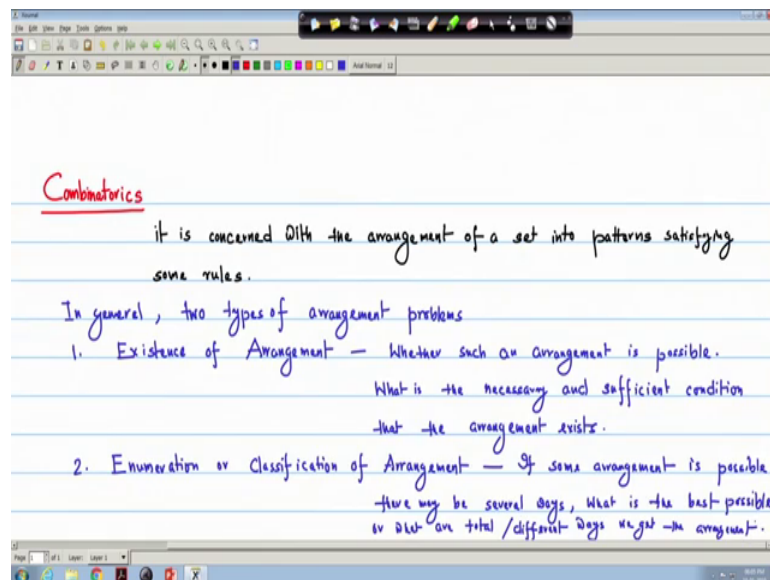 Xournal
File Edit View Page Tools Options Help
Arial Normal 12
Combinatorics
it is concerned with the arrangement of a set into patterns satisfying
some rules.
In general, two types of arrangement problems
1. Existence of Arrangement — Whether such an arrangement is possible.
What is the necessary and sufficient condition
that the arrangement exists.
2. Enumeration or Classification of Arrangement — If some arrangement is possible
there may be several ways, What is the best possible
or what are total / different ways we get the arrangement.
Page 1 of 1 Layer: Layer 1